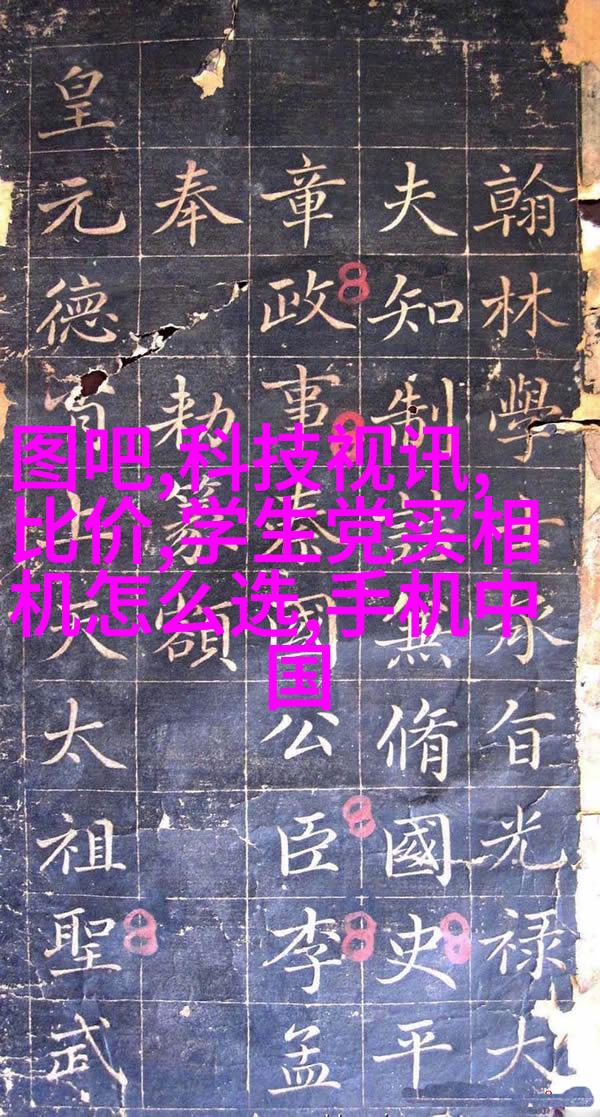 图吧,科技视讯,
比价,学生党买相
机怎么选,手机中
国
翰林學士承旨光禄大
夫知制誥無脩國史平
章政事秦國公臣李孟
奉
勑篆額
皇元德山大太祖聖武